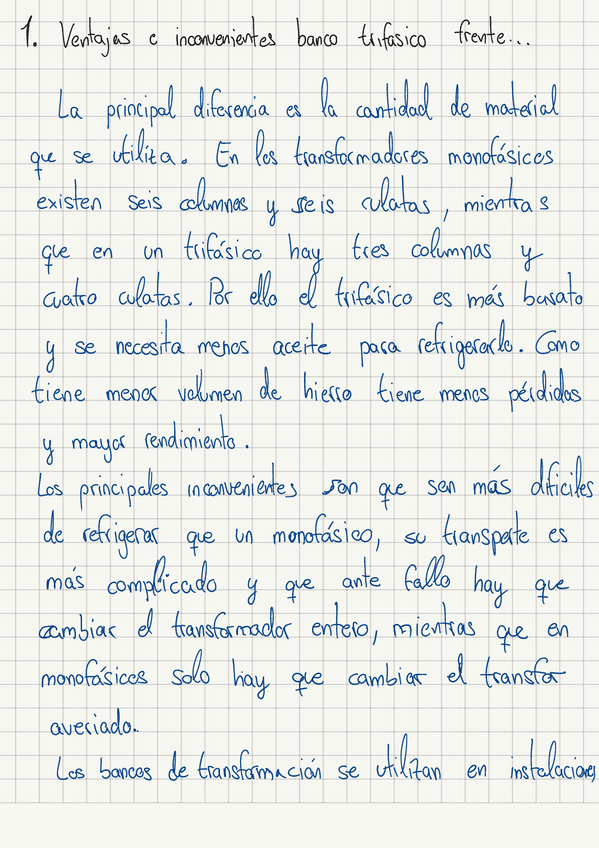 1. Ventajas e inconvenientes banco trifasico frente...
La principal diferencia es la cantidad de material
que se utiliza. En los transformadores monofásicos
existen seis columnas y seis culatas, mientras
que en un trifásico hay tres columnas y
cuatro culatas. Por ello el trifásico es más barato
y se necesita menos aceite para refrigerarlo. Como
tiene menor volumen de hierro tiene menos pérdidas
y mayor rendimiento.
Los principales inconvenientes son que son más difíciles
de refrigerar que un monofásico, su transporte es
más complicado y que ante fallo hay que
cambiar el transformador entero, mientras que en
monofásicos solo hay que cambiar el transfor
averiado.
Los bancos de transformación se utilizan en instalaciones